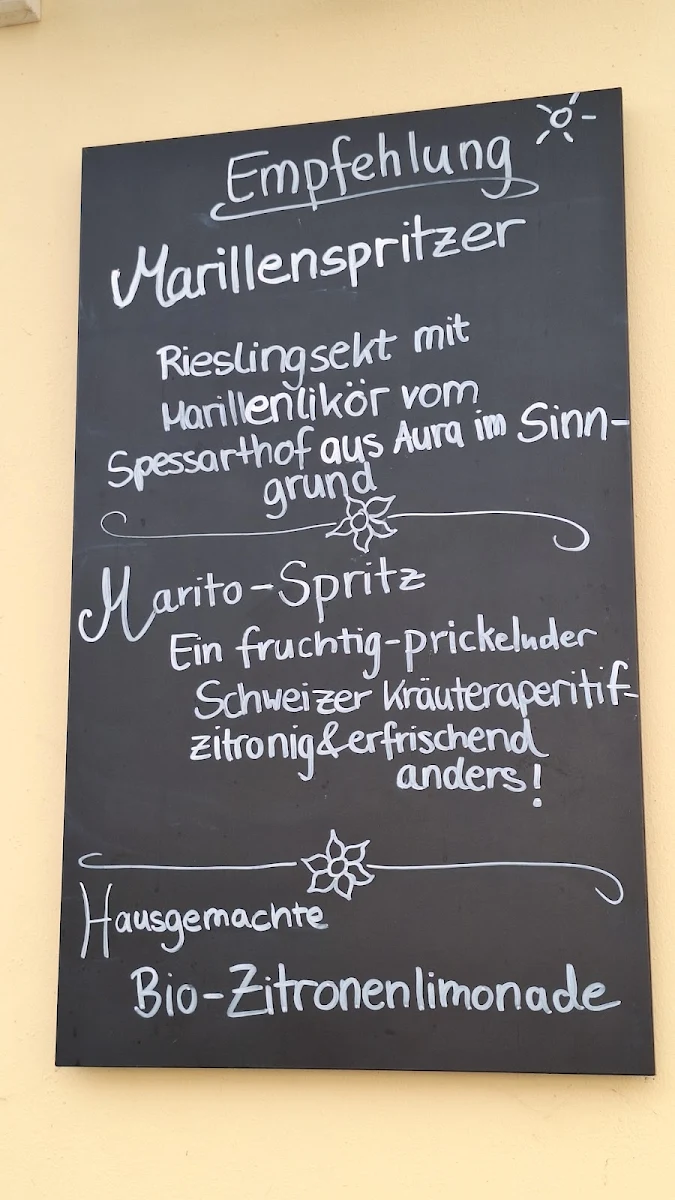 Empfehlung
Marillenspritzer
Rieslingsekt mit
Marillenlikör vom
Spessarthof aus Aura im Sinn-
grund
Marito-Spritz
Ein fruchtig-prickelnder
Schweizer Kräuteraperitif-
zitronig&erfrischend
anders!
Hausgemachte
Bio-Zitronenlimonade